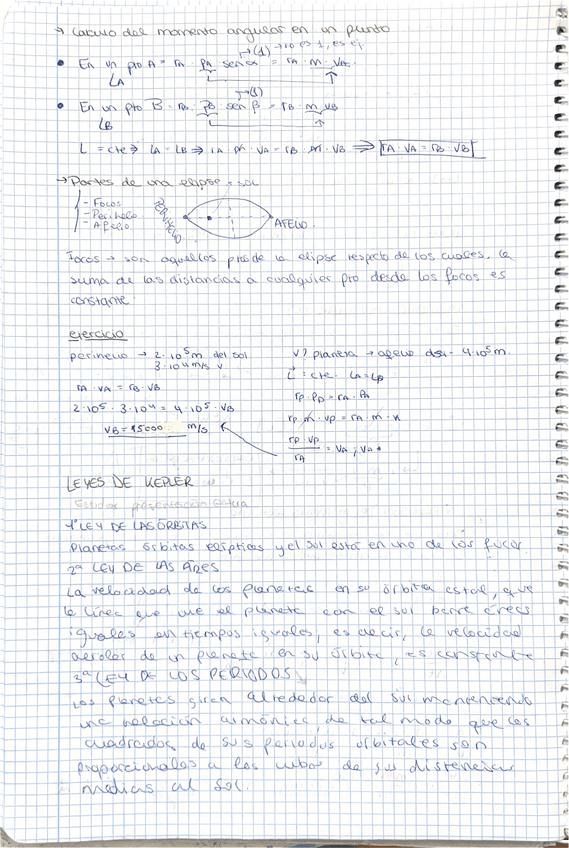 → Calculo del momento angular en un punto
• En un pto A = rA · PA senα = rA · m · VA.
(1) → no es 1, es ej.
LA
• En un pto B = rB · PB · sen β = rB · m · vB
(1)
LB
L = cte ⇒ LA = LB ⇒ rA · m · VA = rB · m · VB ⇒ rA · VA = rB · VB
→ Partes de una elipse → SOL
- Focos
- Perihelio
- Afelio
PERIHELIO
AFELIO.
Focos → son aquellos ptos de la elipse respecto de los cuales, la
suma de las distancias a cualquier pto desde los focos es
constante
ejercicio
perihelio → 2·10⁵m del sol
3·10⁴m/s v
rA · VA = rB · VB
2·10⁵ · 3·10⁴ = 4·10⁵ · VB
VB = 15000 m/s
v? planeta → afelio dsol = 4·10⁵m.
L = cte. LA = LP
rp · Pp = rA · PA
rp · m · vp = rA · m · v
rp · vp / rA = VA ; VA
LEYES DE KEPLER
1ª LEY DE LAS ÓRBITAS
Planetas órbitas elípticas y el sol está en uno de los focos
2ª LEY DE LAS ÁREAS
La velocidad de los planetas en su órbita es tal, que
la línea que une el planeta con el sol barre áreas
iguales en tiempos iguales, es decir, la velocidad
aerolar de un planeta en su órbita, es constante
3ª (LEY DE LOS PERIODOS)
Los planetas giran alrededor del sol manteniendo
una relación armónica, de tal modo que los
cuadrados de sus periodos orbitales son
proporcionales a los cubos de sus distancias
medias al sol.